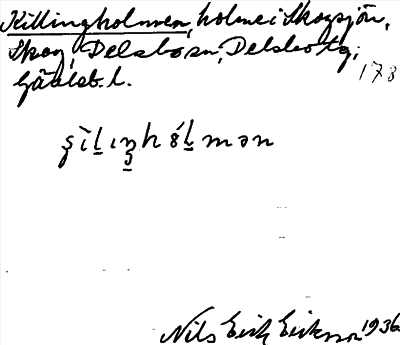 Killingholmen, holme i Skogsjön,
Skog, Delsbo sn, Delsbo tg,
Gävleb. l.
178
Nils Erik Eriksson 1936